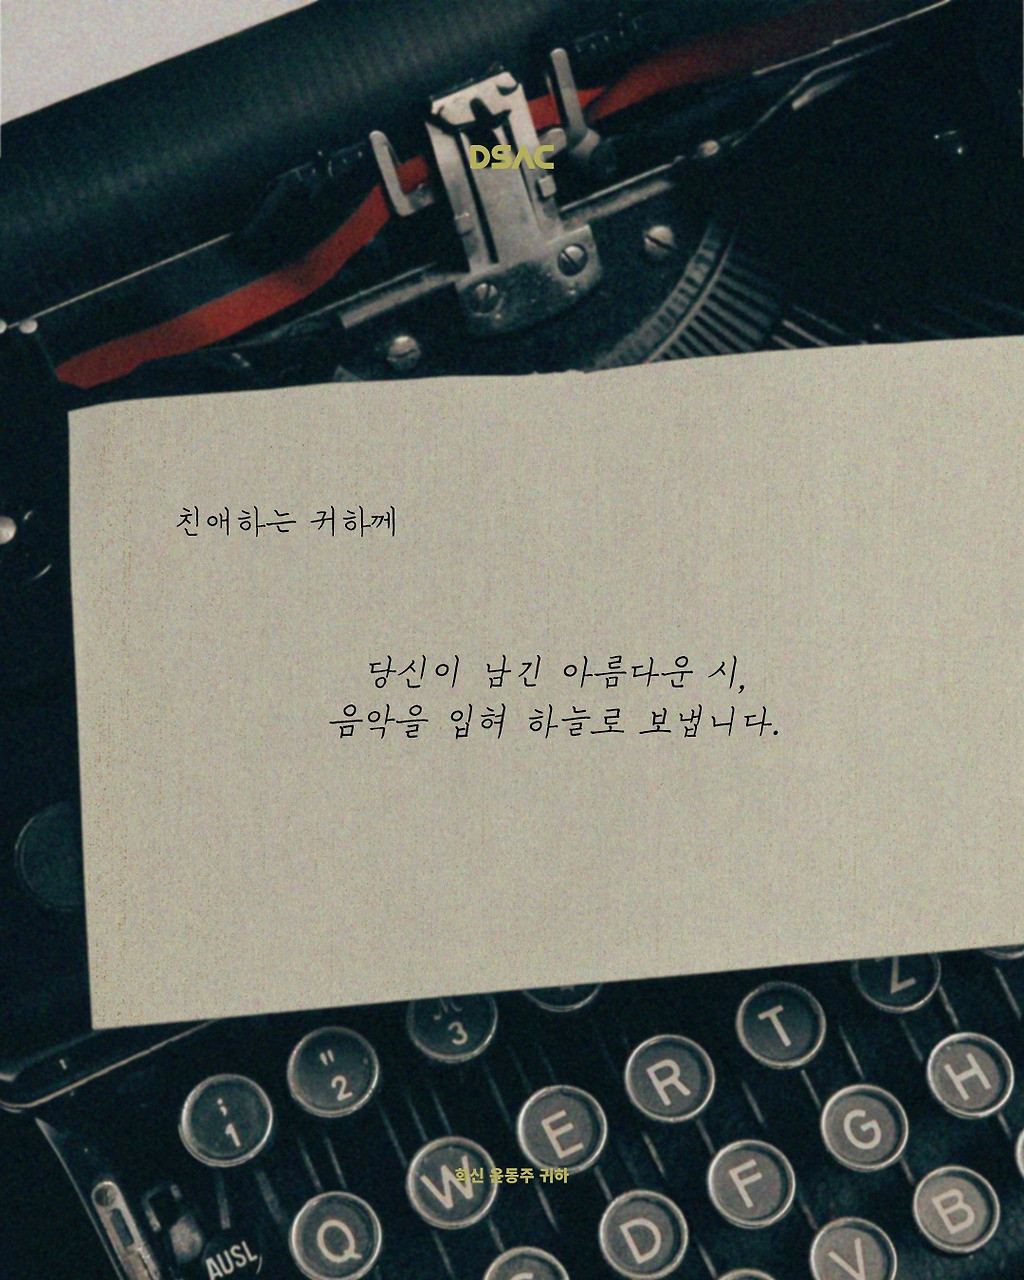 DSAC
친애하는 귀하께
당신이 남긴 아름다운 시,
음악을 입혀 하늘로 보냅니다.
Z
" 2
3
T
; 1
R
H
E
G
회신 윤동주 귀하
W
F
B
Q
D
V
AUSL